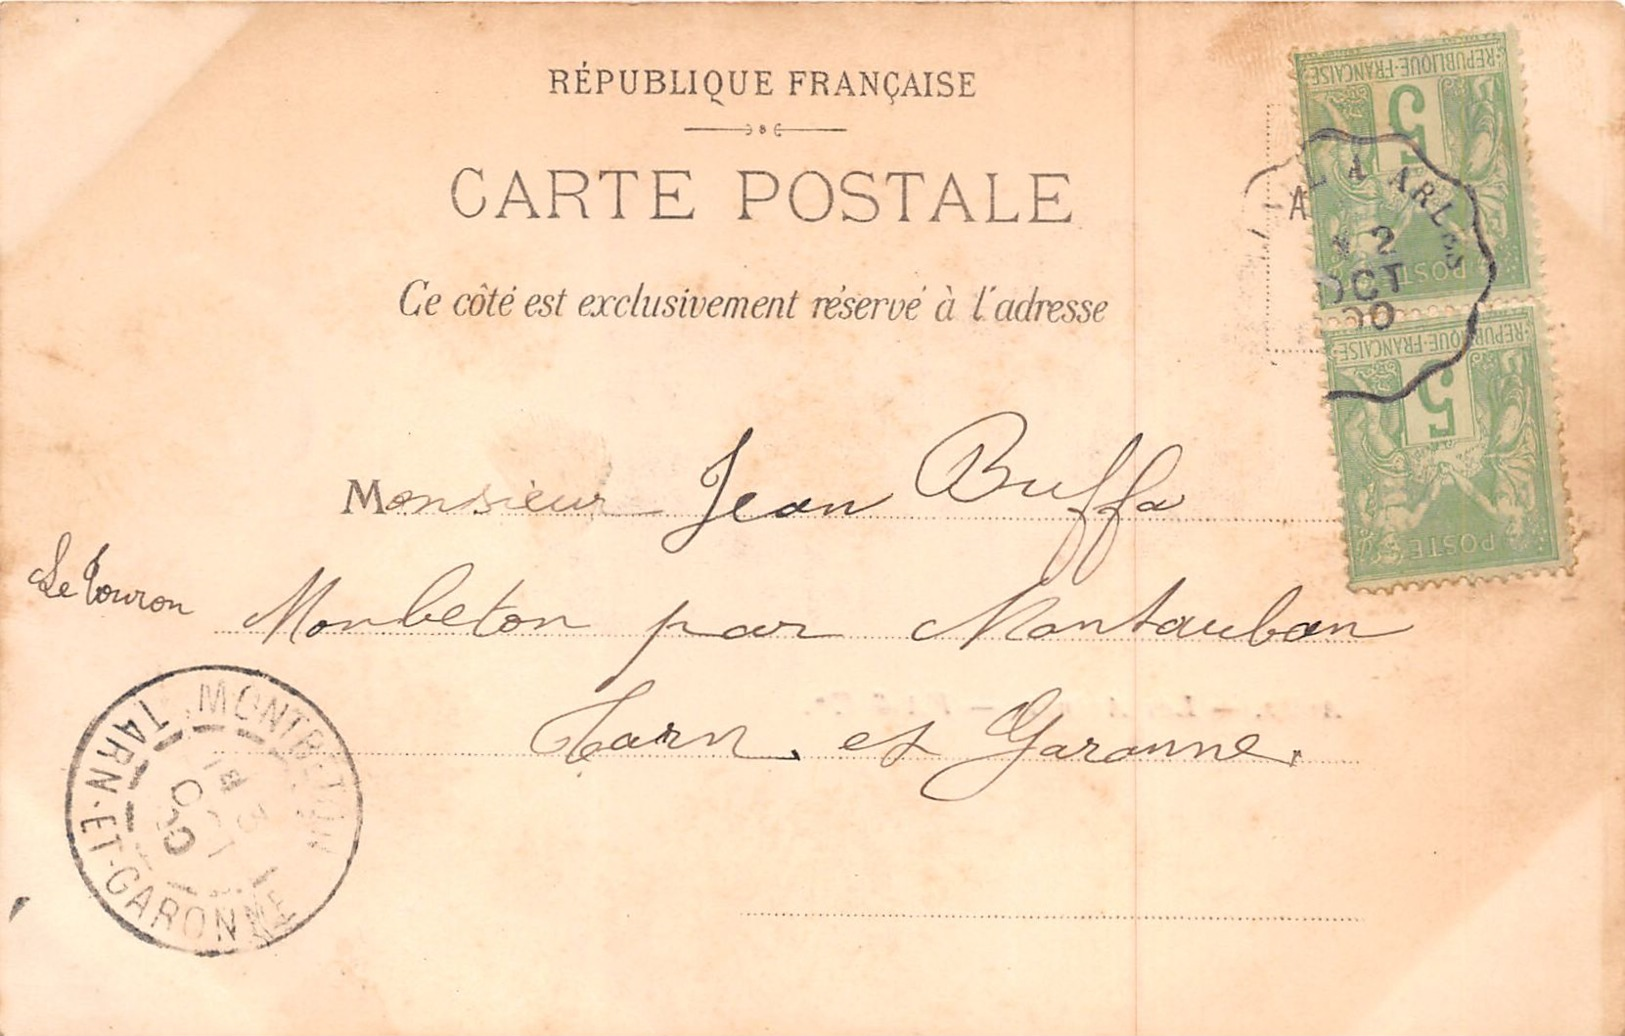 RÉPUBLIQUE FRANÇAISE
CARTE POSTALE
Ce côté est exclusivement réservé à l'adresse
REPUBLIQUE·FRANÇAISE
5
POSTE
REPUBLIQUE·FRANÇAISE
5
POSTE
A ARLES
2
OCT
00
Monsieur Jean Buffa
Le Touron
Monbeton par Montauban
Tarn et Garonne.
MONTBETON
TARN-ET-GARONNE
3
OCT
00